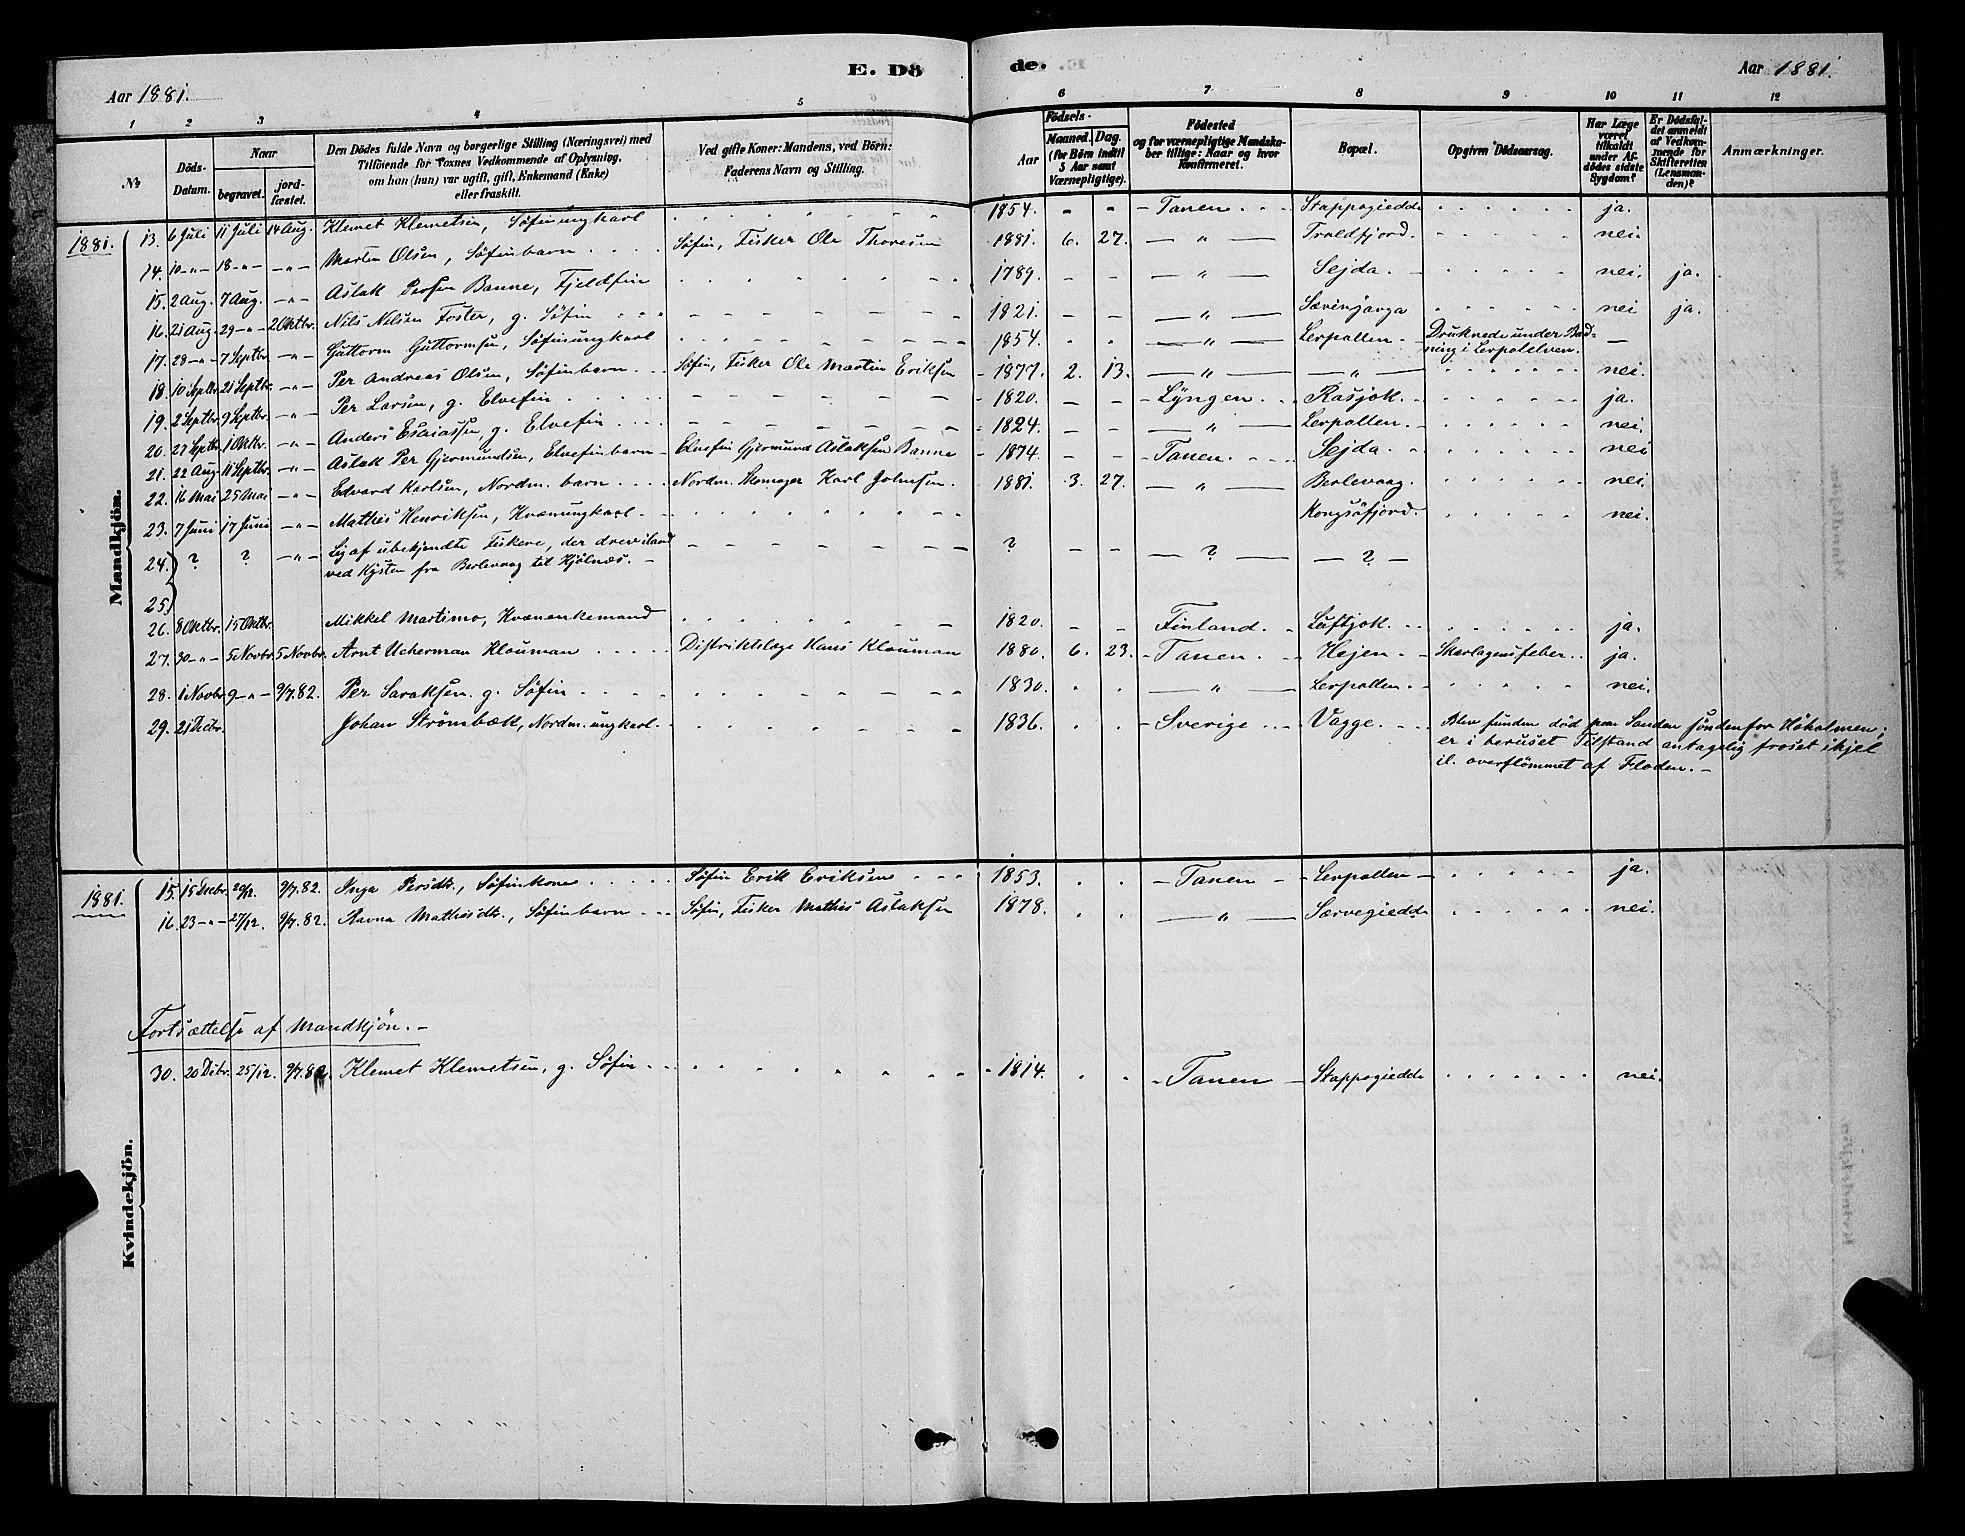 E. Dö de.
Aar 1881. Aar 1881.
1 2 3 4 5 6 7 8 9 10 11 12
№ Döds-Datum. Naar begravet. jordfæstet. Den Dödes fulde Navn og borgerlige Stilling (Næringsvei) med Tilföiende for Voxnes Vedkommende af Oplysning, om han (hun) var ugift, gift, Enkemand (Enke) eller fraskilt. Ved gifte Koner: Mandens, ved Börn: Faderens Navn og Stilling. Födsels- Aar Maaned. Dag. (for Börn indtil 5 Aar samt Værnepligtige). Födested og for værnepligtige Mandskaber tillige: Naar og hvor konfirmeret. Bopæl. Opgiven Dödsaarsag. Har Læge været tilkaldt under Afdödes sidste Sygdom? Er Dödsfaldet anmeldt af Vedkommende for Skifteretten (Lensmanden)? Anmærkninger.
Mandkjön.
1881. 13. 6 Juli 11 Juli 14 Aug. Klemet Klemetsen, Söfinungkarl 1854. - - Tanen Stappogiedde ja.
14. 10 -"- 18 -"- -"- Morten Olsen, Söfinbarn Söfin, Fisker Ole Thoresen 1881. 6. 27. -"- Troldfjord. nei.
15. 2 Aug. 7 Aug. -"- Aslak Persen Banne, Fjeldfin 1789. - - -"- Sejda. nei. ja.
16. 21 Aug. 29 -"- 2 Oktbr. Nils Nilsen Foster, g. Söfin 1821. - - -"- Sævinjarga nei ja.
17. 28 -"- 7 Septbr. -"- Guttorm Guttormsen, Söfinungkarl 1854. -"- Lerpollen Druknede under Bad-
ning i Lerpolelven. -
18. 10 Septbr. 21 Septbr. -"- Per Andreas Olsen, Söfinbarn Söfin, Fisker Ole Martin Eriksen 1877. 2. 13. -"- -"- nei.
19. 2 Septbr. 9 Septbr. -"- Per Larsen, g. Elvefin 1820. - - Lyngen Rasjok. ja.
20. 27 Septbr. 1 Oktbr. -"- Anders Esaiassen, g. Elvefin 1824. - - -"- Lerpollen. nei.
21. 22 Aug. 11 Septbr. -"- Aslak Per Gjermundsen, Elvefinbarn Elvefin Gjermund Aslaksen Banne 1874. - - Tanen. Sejda. nei
22. 16 Mai 25 Mai -"- Edvard Karlsen, Nordm. barn Nordm. Skomager Karl Johnsen. 1881. 3. 27. -"- Berlevaag. nei.
23. 7 Juni 17 Juni -"- Mathis Henriksen, Kvænungkarl ? Kongsöfjord. nei.
24. ? ? -"- Lig af ubekjendte Fiskere, der drev iland ? - - -?- -?-
ved Kysten fra Berlevaag til Kjölnæs. -
25.
26. 8 Oktbr. 15 Oktbr. Mikkel Martimo, Kvænenkemand 1820. - - Finland. Luftjok. ja.
27. 30 -"- 5 Novbr. 5 Novbr. Arnt Ucherman Klouman Distriktslæge Hans Klouman 1880. 6. 23. Tanen. Hejen Skarlagensfeber. ja.
28. 1 Novbr. 9 -"- 9/7. 82. Per Saraksen. g. Söfin 1830. -"- Lerpollen. nei.
29. 21 Decbr. Johan Strömbæk, Nordm. ungkarl. 1836. Sverige Vagge. Blev funden död paa Sanden söndenfor Höholmen;
er i beruset Tilstand antagelig froset ihjel
il. overflömmet af Floden. -
Kvindekjön.
1881. 15. 15 Decbr. 20/12. 9/7. 82. Inga Persdtr., Söfinkone Söfin Erik Eriksen 1853. Tanen Lerpollen ja.
16. 23 -"- 27/12. 9/7. 82. Ravna Mathisdtr., Söfinbarn Söfin, Fisker Mathis Aslaksen 1878. -"- Særvegiedde nei.
Fortsættelse af Mandkjön. -
30. 20 Dcbr. 25/12. 9/7. 82. Klemet Klemetsen, g. Söfin 1814. Tanen Stappogiedde nei.